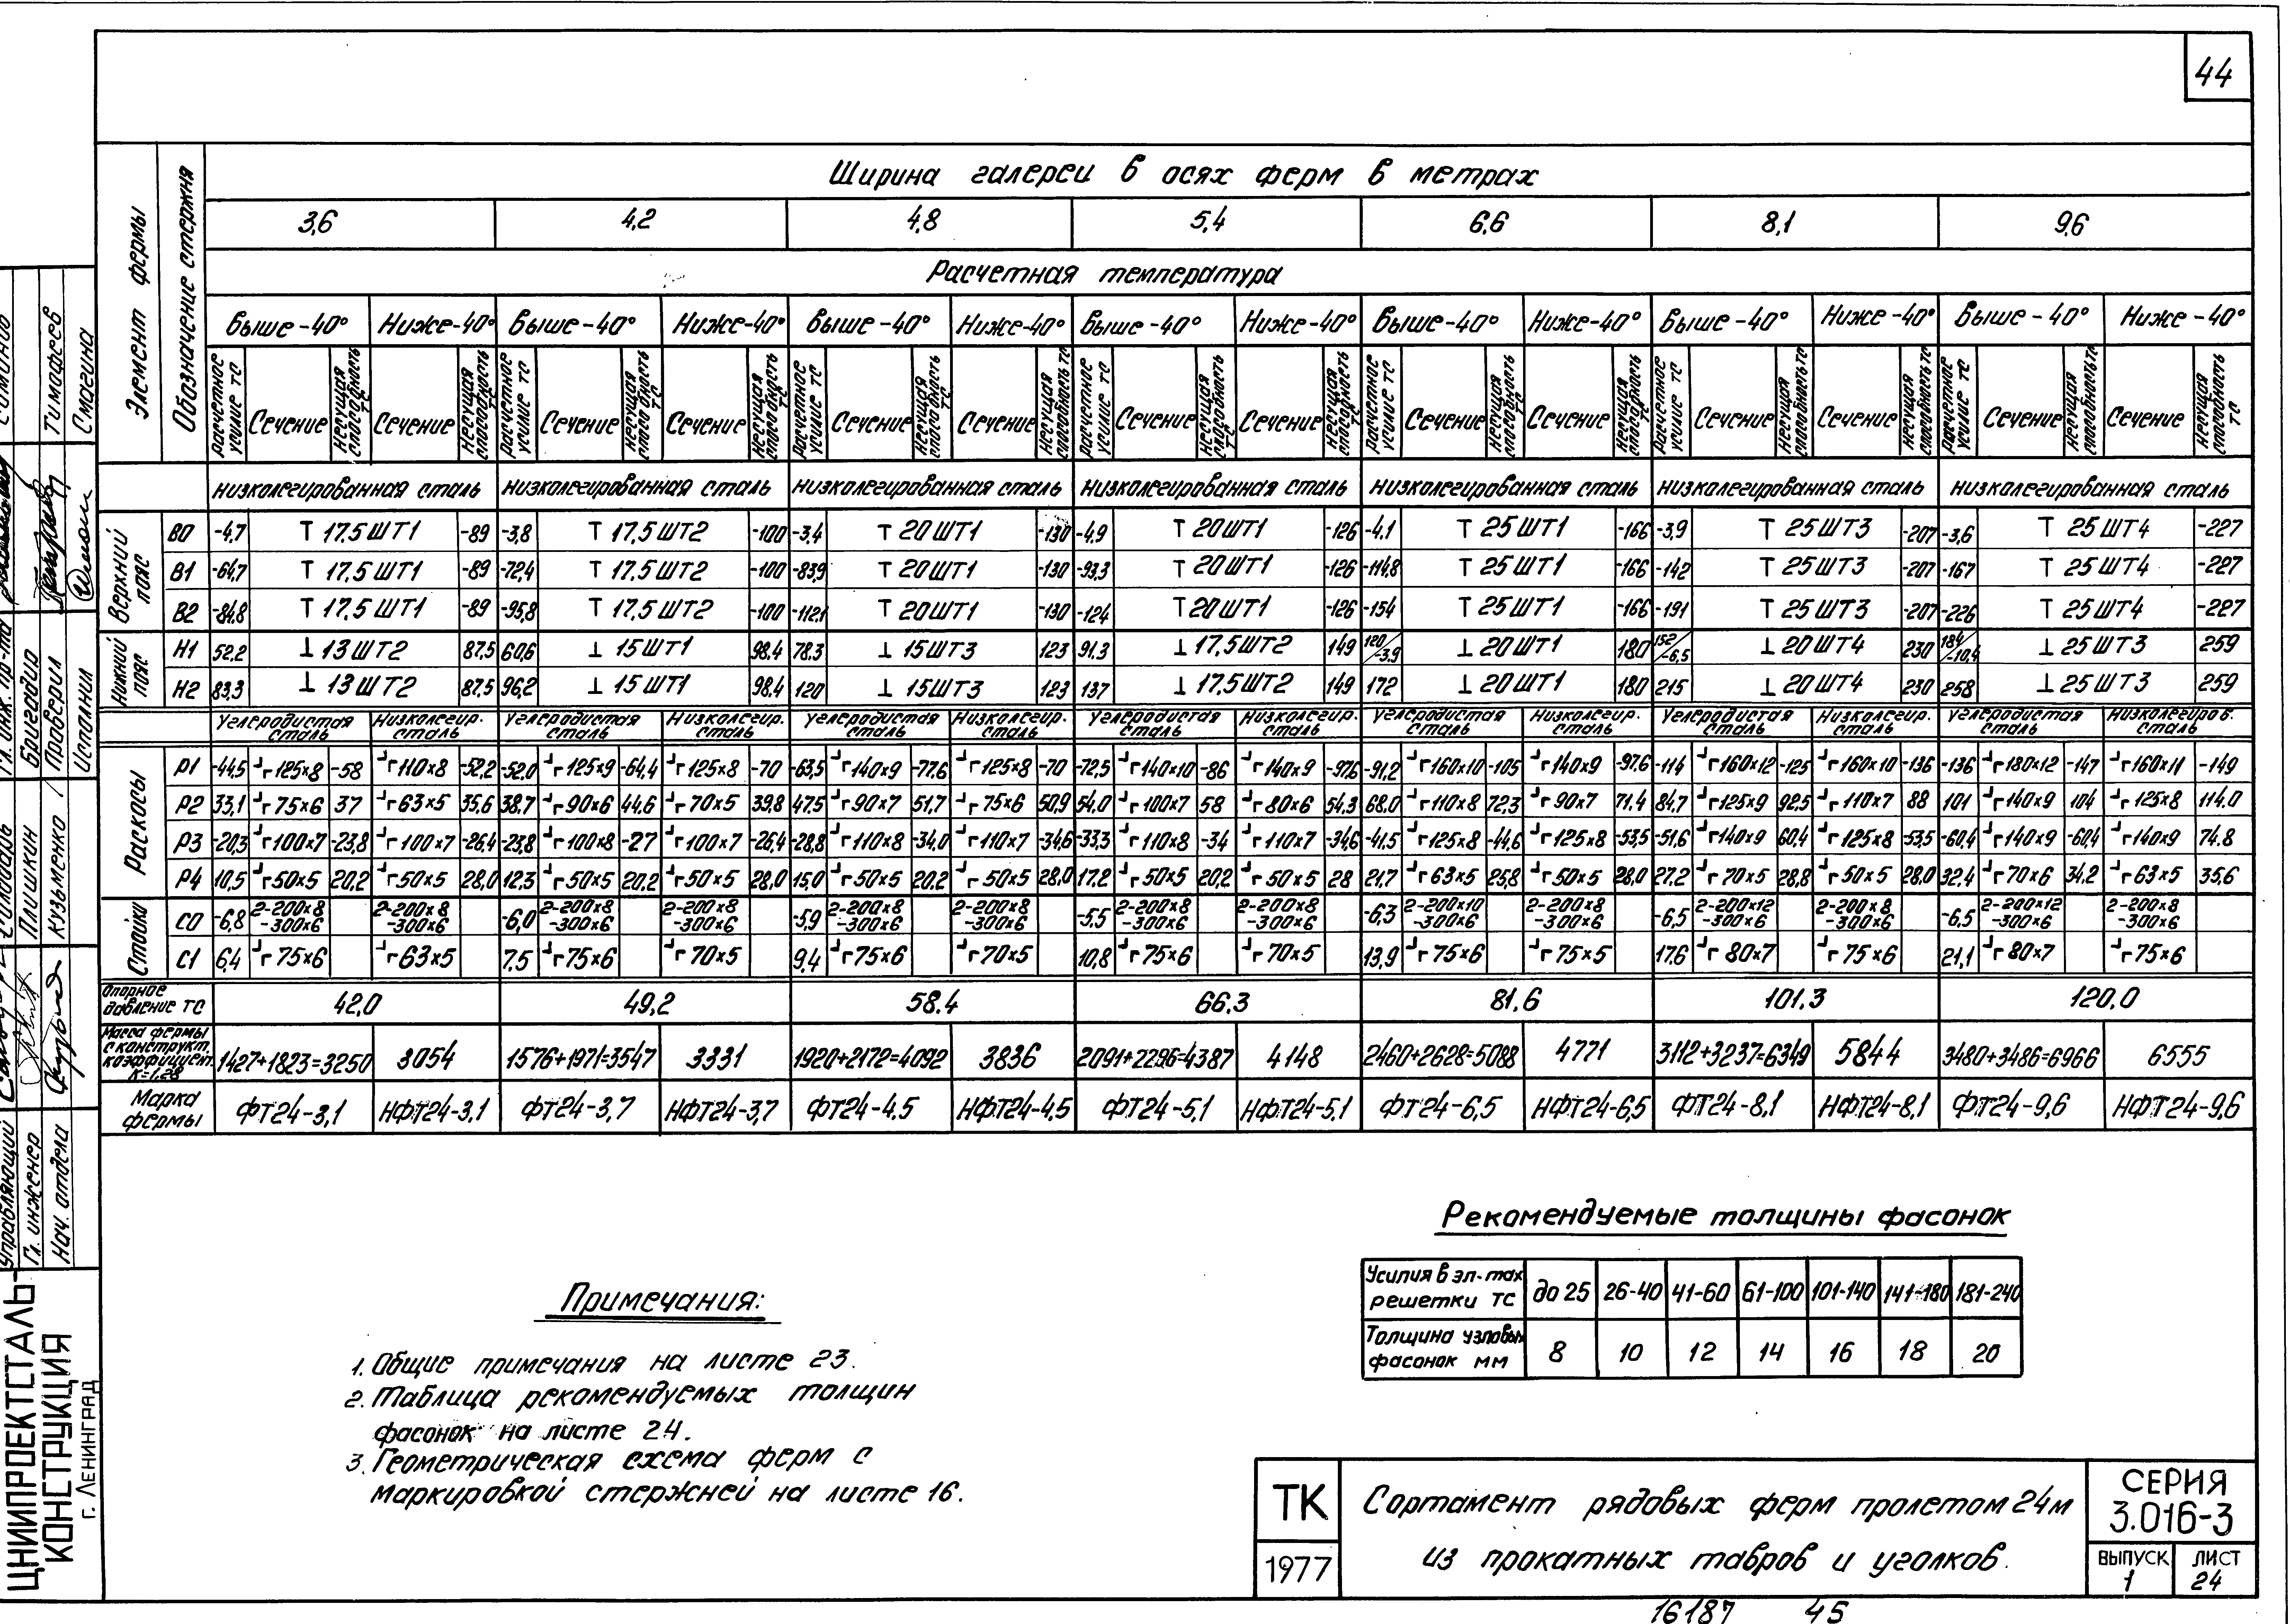 44
Ширина галереи в осях ферм в метрах
3,6 4,2 4,8 5,4 6,6 8,1 9,6
Расчетная температура
Элемент фермы
Обозначение стержня
Выше-40° Ниже-40° Выше-40° Ниже-40° Выше-40° Ниже-40° Выше-40° Ниже-40° Выше-40° Ниже-40° Выше-40° Ниже-40° Выше-40° Ниже-40°
Расчетное усилие ТС Сечение Несущая способность ТС Сечение Несущая способность ТС Расчетное усилие ТС Сечение Несущая способность ТС Сечение Несущая способность ТС Расчетное усилие ТС Сечение Несущая способность ТС Сечение Несущая способность ТС Расчетное усилие ТС Сечение Несущая способность ТС Сечение Несущая способность ТС Расчетное усилие ТС Сечение Несущая способность ТС Сечение Несущая способность ТС Расчетное усилие ТС Сечение Несущая способность ТС Сечение Несущая способность ТС Расчетное усилие ТС Сечение Несущая способность ТС Сечение Несущая способность ТС
Низколегированная сталь Низколегированная сталь Низколегированная сталь Низколегированная сталь Низколегированная сталь Низколегированная сталь Низколегированная сталь
Верхний пояс
В0 -4,7 Т 17.5 ШТ1 -89 -3,8 Т 17.5 ШТ2 -100 -3,4 Т 20 ШТ1 -130 -4,9 Т 20ШТ1 -126 -4,1 Т 25 ШТ1 -166 -3,9 Т 25 ШТ3 -207 -3,6 Т 25 ШТ4 -227
В1 -64,7 Т 17,5 ШТ1 -89 -72,4 Т 17.5 ШТ2 -100 -83,9 Т 20ШТ1 -130 -93,3 Т 20ШТ1 -126 -114,8 Т 25 ШТ1 -166 -142 Т 25ШТ3 -207 -167 Т 25 ШТ4 -227
В2 -84,8 Т 17,5 ШТ1 -89 -95,8 Т 17,5 ШТ2 -100 -112,1 Т 20ШТ1 -130 -124 Т 20ШТ1 -126 -154 Т 25ШТ1 -166 -191 Т 25 ШТ3 -207 -226 Т 25 ШТ4 -227
Нижний пояс
Н1 52,2 ⊥ 13 ШТ2 87,5 60,6 ⊥ 15ШТ1 98.4 78.3 ⊥ 15ШТ3 123 91.3 ⊥ 17,5ШТ2 149 120/-3,9 ⊥ 20ШТ1 180 152/-6,5 ⊥ 20 ШТ4 230 184/-10,4 ⊥ 25ШТ3 259
Н2 83,3 ⊥ 13 ШТ2 87,5 96,2 ⊥ 15 ШТ1 98,4 120 ⊥ 15ШТ3 123 137 ⊥ 17,5ШТ2 149 172 ⊥ 20ШТ1 180 215 ⊥ 20 ШТ4 230 258 ⊥ 25 ШТ3 259
Углеродистая сталь Низколегир. сталь Углеродистая сталь Низколегир. сталь Углеродистая сталь Низколегир. сталь Углеродистая сталь Низколегир. сталь Углеродистая сталь Низколегир. сталь Углеродистая сталь Низколегир. сталь Углеродистая сталь Низколегиров. сталь
Раскосы
Р1 -44,5 ┘┌ 125×8 -58 ┘┌ 110×8 -52,2 -52,0 ┘┌ 125×9 -64,4 ┘┌ 125×8 -70 -63,5 ┘┌ 140×9 -77.6 ┘┌ 125×8 -70 -72,5 ┘┌ 140×10 -86 ┘┌ 140×9 -97,6 -91,2 ┘┌ 160×10 -105 ┘┌ 140×9 -97.6 -114 ┘┌ 160×12 -125 ┘┌ 160×10 -136 -136 ┘┌ 180×12 -147 ┘┌ 160×11 -149
Р2 33,1 ┘┌ 75×6 37 ┘┌ 63×5 35,6 38,7 ┘┌ 90×6 44,6 ┘┌ 70×5 39,8 47,5 ┘┌ 90×7 51,7 ┘┌ 75×6 50,9 54,0 ┘┌ 100×7 58 ┘┌ 80×6 54,3 68,0 ┘┌ 110×8 72,3 ┘┌ 90×7 71.4 84,7 ┘┌ 125×9 92,5 ┘┌ 110×7 88 101 ┘┌ 140×9 104 ┘┌ 125×8 114.0
Р3 -20,3 ┘┌ 100×7 -23,8 ┘┌ 100×7 -26,4 -23,8 ┘┌ 100×8 -27 ┘┌ 100×7 -26,4 -28,8 ┘┌ 110×8 -34,0 ┘┌ 110×7 -34,6 -33,3 ┘┌ 110×8 -34 ┘┌ 110×7 -34,6 -41,5 ┘┌ 125×8 -44,6 ┘┌ 125×8 -53,5 -51,6 ┘┌ 140×9 60,4 ┘┌ 125×8 -53,5 -60,4 ┘┌ 140×9 -60,4 ┘┌ 140×9 74.8
Р4 10,5 ┘┌ 50×5 20,2 ┘┌ 50×5 28,0 12,3 ┘┌ 50×5 20,2 ┘┌ 50×5 28,0 15,0 ┘┌ 50×5 20,2 ┘┌ 50×5 28,0 17,2 ┘┌ 50×5 20,2 ┘┌ 50×5 28 21,7 ┘┌ 63×5 25,8 ┘┌ 50×5 28,0 27,2 ┘┌ 70×5 28,8 ┘┌ 50×5 28,0 32,4 ┘┌ 70×6 34,2 ┘┌ 63×5 35,6
Стойки
С0 -6,8 2-200×8 -300×6 2-200×8 -300×6 -6,0 2-200×8 -300×6 2-200×8 -300×6 -5,9 2-200×8 -300×6 2-200×8 -300×6 -5,5 2-200×8 -300×6 2-200×8 -300×6 -6,3 2-200×10 -300×6 2-200×8 -300×6 -6,5 2-200×12 -300×6 2-200×8 -300×6 -6,5 2-200×12 -300×6 2-200×8 -300×6
С1 6,4 ┘┌ 75×6 ┘┌ 63×5 7,5 ┘┌ 75×6 ┘┌ 70×5 9,4 ┘┌ 75×6 ┘┌ 70×5 10,8 ┘┌ 75×6 ┘┌ 70×5 13,9 ┘┌ 75×6 ┘┌ 75×5 17,6 ┘┌ 80×7 ┘┌ 75×6 21,1 ┘┌ 80×7 ┘┌ 75×6
Опорное давление ТС 42,0 49,2 58.4 66,3 81,6 101,3 120,0
Масса фермы с конструкт. коэффициент. К=1,28 1427+1823=3250 3054 1576+1971=3547 3331 1920+2172=4092 3836 2091+2296=4387 4148 2460+2628=5088 4771 3112+3237=6349 5844 3480+3486=6966 6555
Марка фермы ФТ24-3,1 НФТ24-3,1 ФТ24-3,7 НФТ24-3,7 ФТ24-4,5 НФТ24-4,5 ФТ24-5,1 НФТ24-5,1 ФТ24-6,5 НФТ24-6,5 ФТ24-8,1 НФТ24-8,1 ФТ24-9,6 НФТ24-9,6
Рекомендуемые толщины фасонок
Усилия в эл-тах решетки ТС до 25 26-40 41-60 61-100 101-140 141-180 181-240
Толщина узловых фасонок мм 8 10 12 14 16 18 20
Примечания:
1. Общие примечания на листе 23.
2. Таблица рекомендуемых толщин
фасонок на листе 24.
3. Геометрическая схема ферм с
маркировкой стержней на листе 16.
ТК
1977
Сортамент рядовых ферм пролетом 24м
из прокатных тавров и уголков.
СЕРИЯ
3.016-3
ВЫПУСК 1
ЛИСТ 24
16187 45
Управляющий
Гл. инженер Плишкин
Нач. отдела Кузьменко
Гл. инж. пр-та
Бригадир
Проверил Тимофеев
Исполнил Смагина
ЦНИИПРОЕКТСТАЛЬ-
КОНСТРУКЦИЯ
г. Ленинград